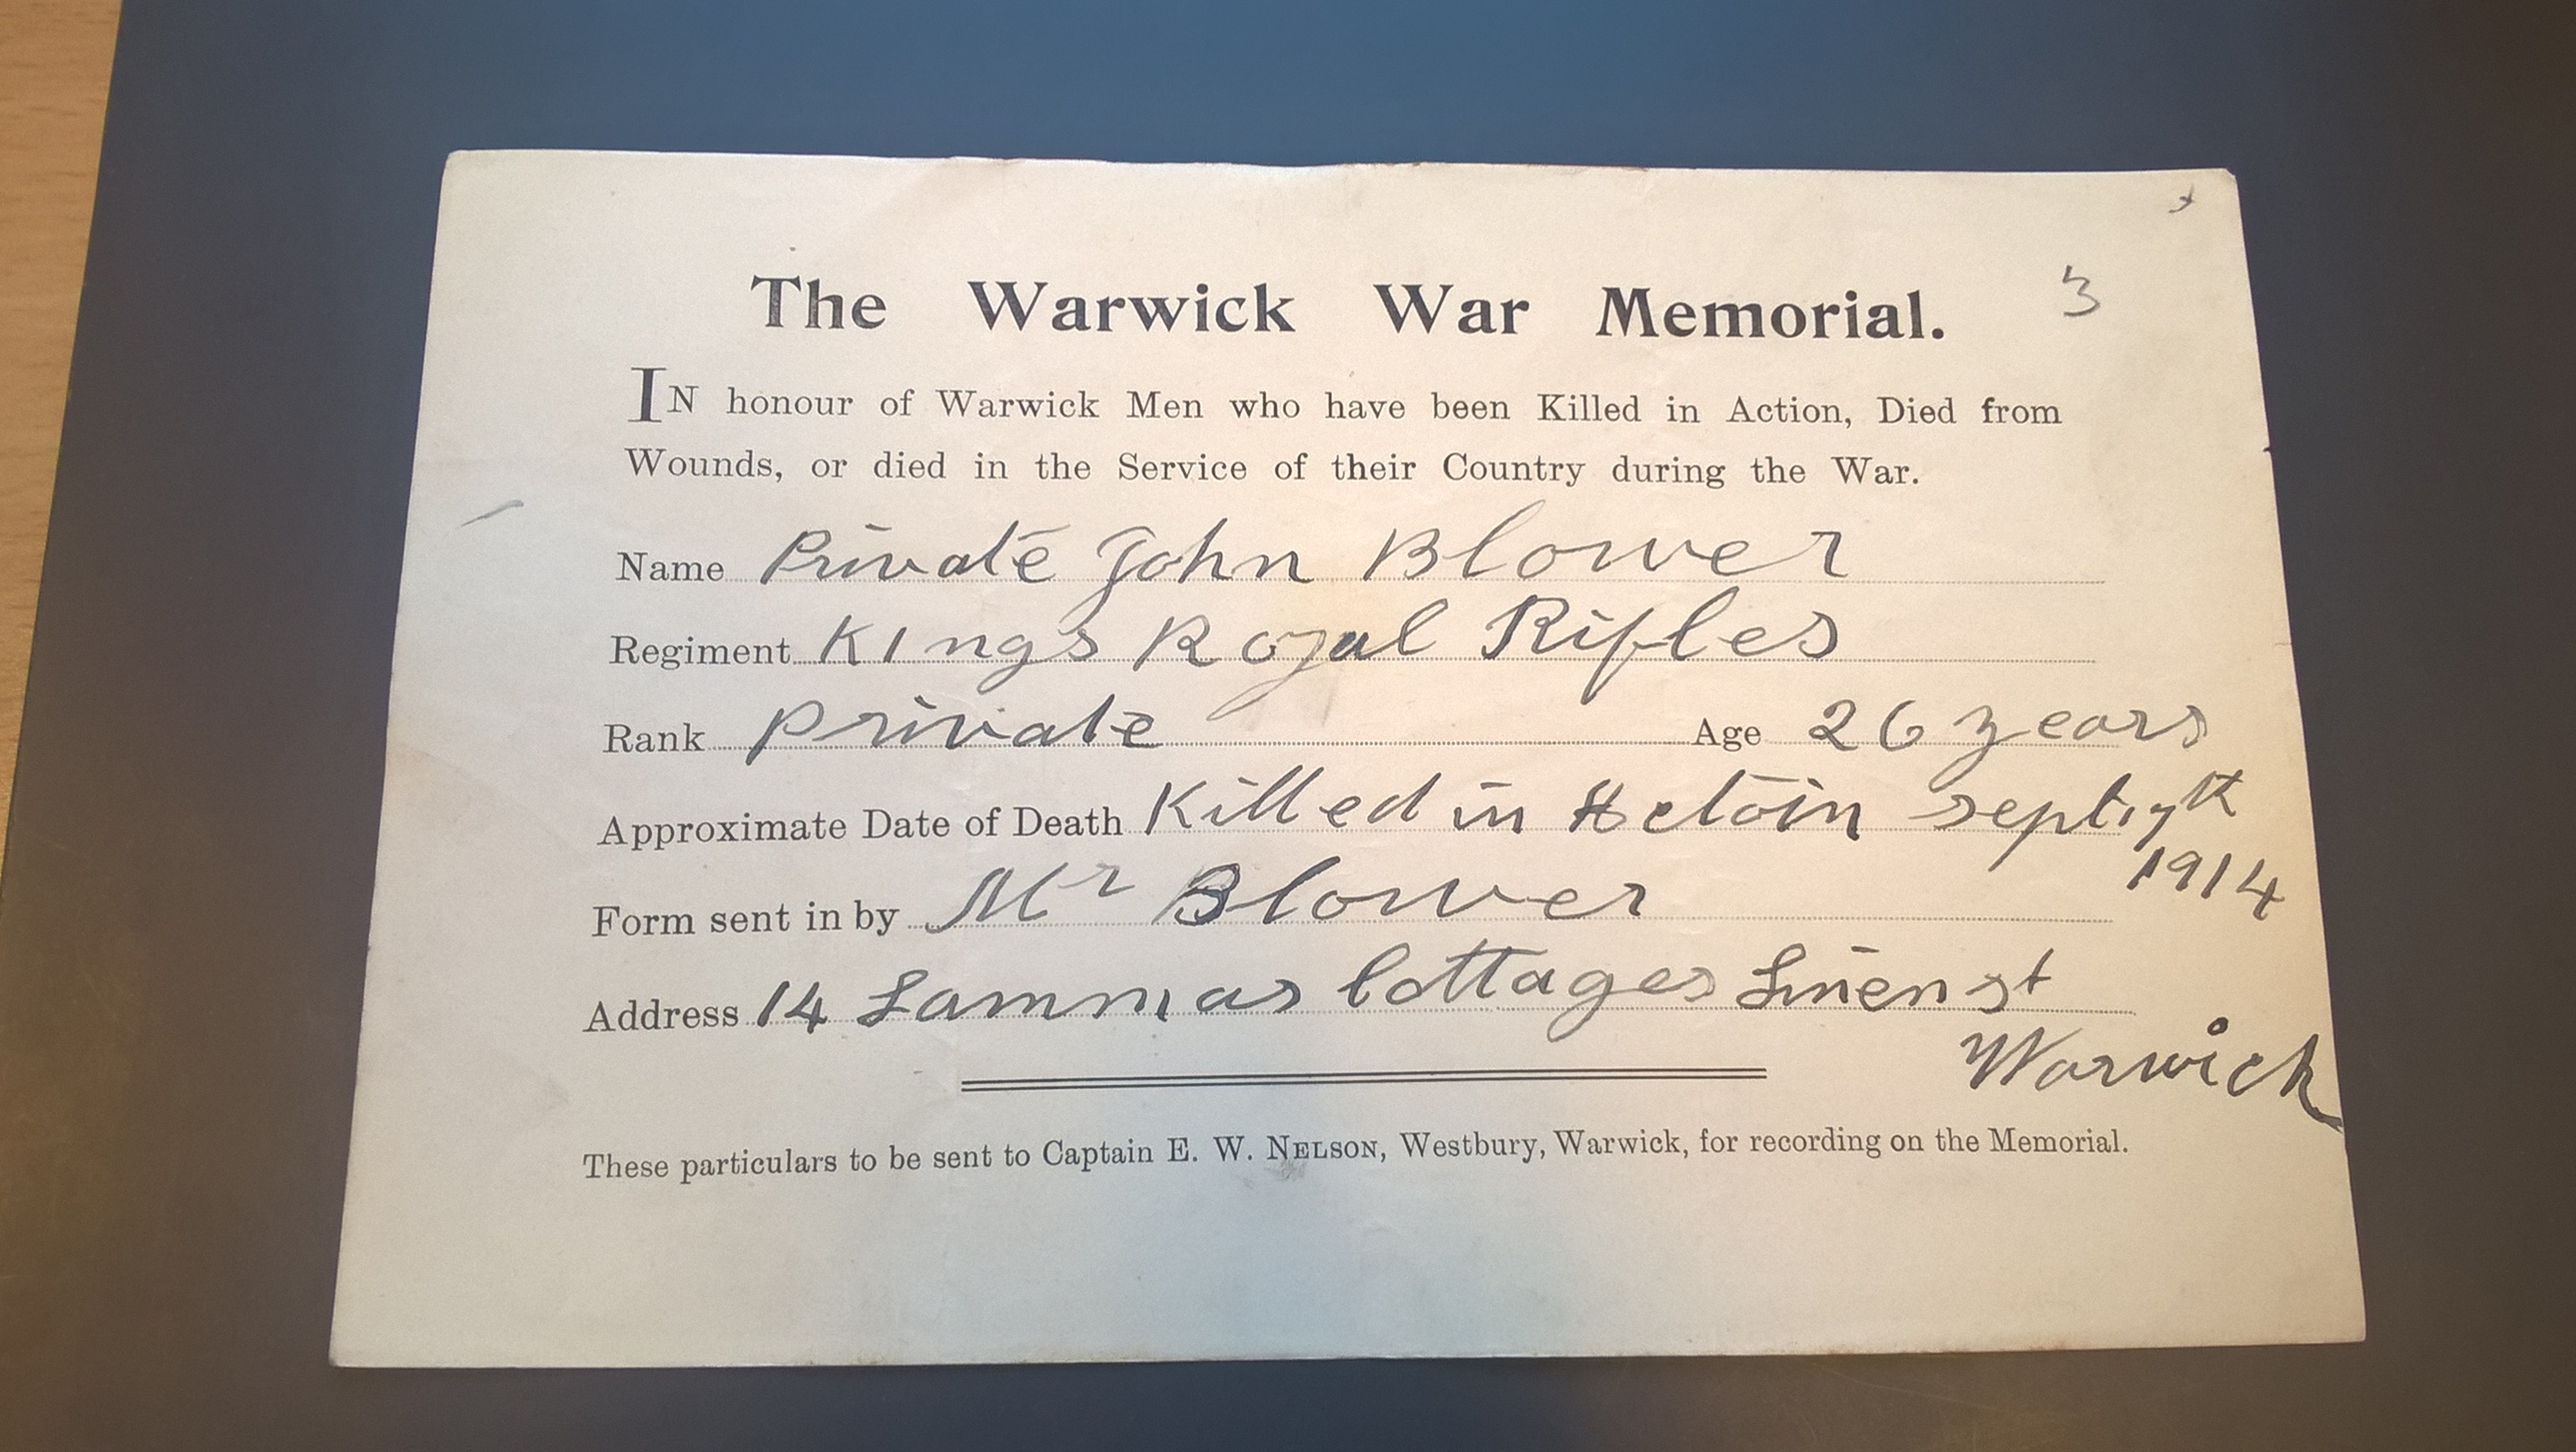 The Warwick War Memorial. 3
IN honour of Warwick Men who have been Killed in Action, Died from
Wounds, or died in the Service of their Country during the War.
Name Private John Blower
Regiment Kings Royal Rifles
Rank private Age 26 years
Approximate Date of Death Killed in
1914
Form sent in by Mr Blower
Address 14 Lammas Cottages Linen st
Warwick
These particulars to be sent to Captain E. W. NELSON, Westbury, Warwick, for recording on the Memorial.